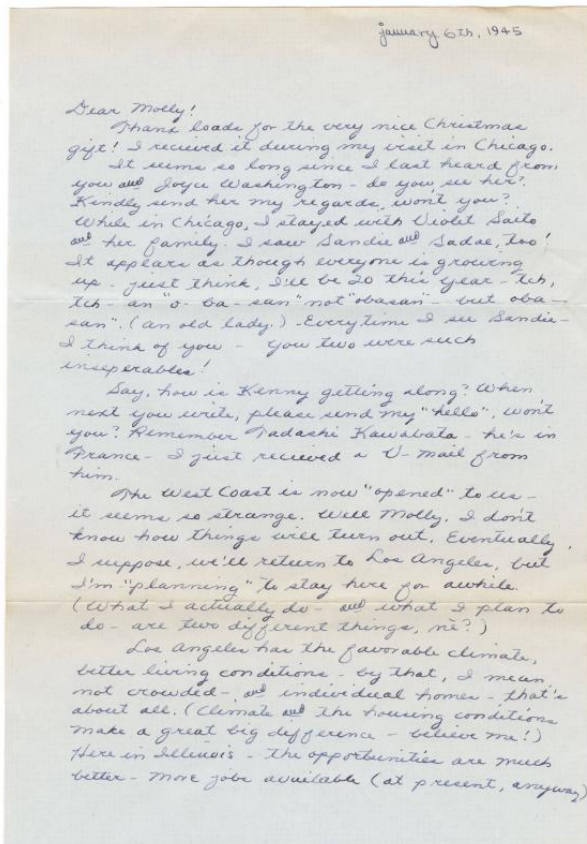 january 6th, 1945
Dear Molly!
Thank loads for the very nice Christmas
gift! I recieved it during my visit in Chicago.
It seems so long since I last heard from
you and Joyce Washington - do you, see her?
Kindly send her my regards, won't you?
While in Chicago, I stayed with Violet Saito
and her family. I saw Sandie and Sadae, too!
It appears as though everyone is growing
up - just think, I'll be 20 this year - tch,
tch - an "o-ba-san" not "obasan" - but oba-
san". (an old lady.) Everytime I see Sandie -
I think of you - you two were such
inseperables!
Say, how is Kenny getting along? When
next you write, please send my "hello", won't
you? Remember Tadashi Kawabata - he's in
France - I just recieved a V-mail from
him.
The West Coast is now "opened" to us -
it seems so strange. Well Molly, I don't
know how things will turn out. Eventually,
I suppose, we'll return to Los Angeles, but
I'm "planning" to stay here for awhile.
(What I actually do - and what I plan to
do - are two different things, nē?)
Los Angeles has the favorable climate,
better living conditions - by that, I mean
not crowded - and individual homes - that's
about all. (Climate and the housing conditions
make a great big difference - believe me!)
Here in Illinois - the opportunities are much
better - more jobs available (at present, anyway)